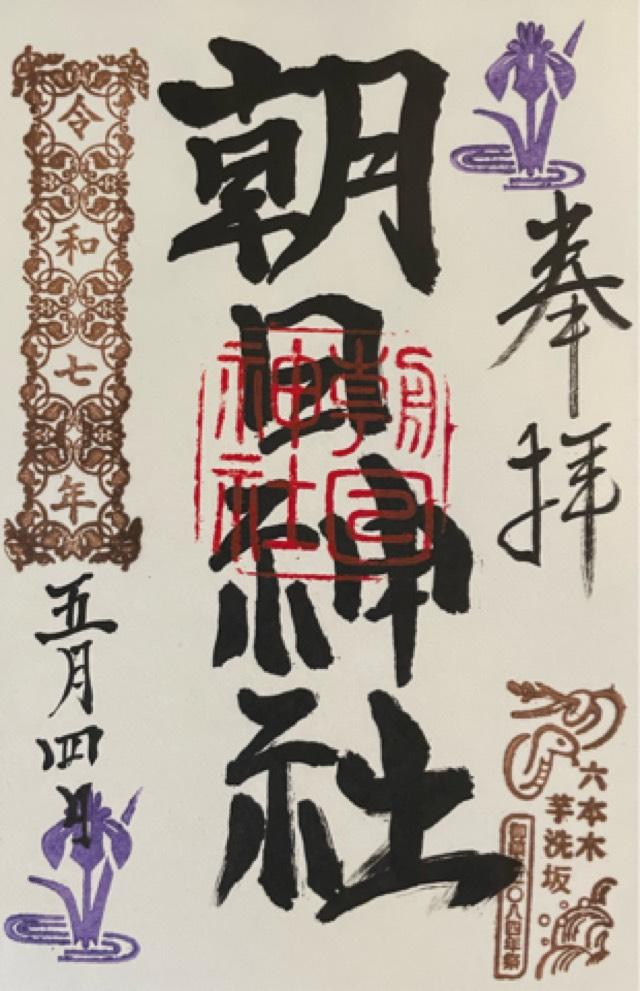 奉拝
六本木
芋洗坂
創建一〇八四年祭
朝日神社
朝日神社
令和七年
五月四日